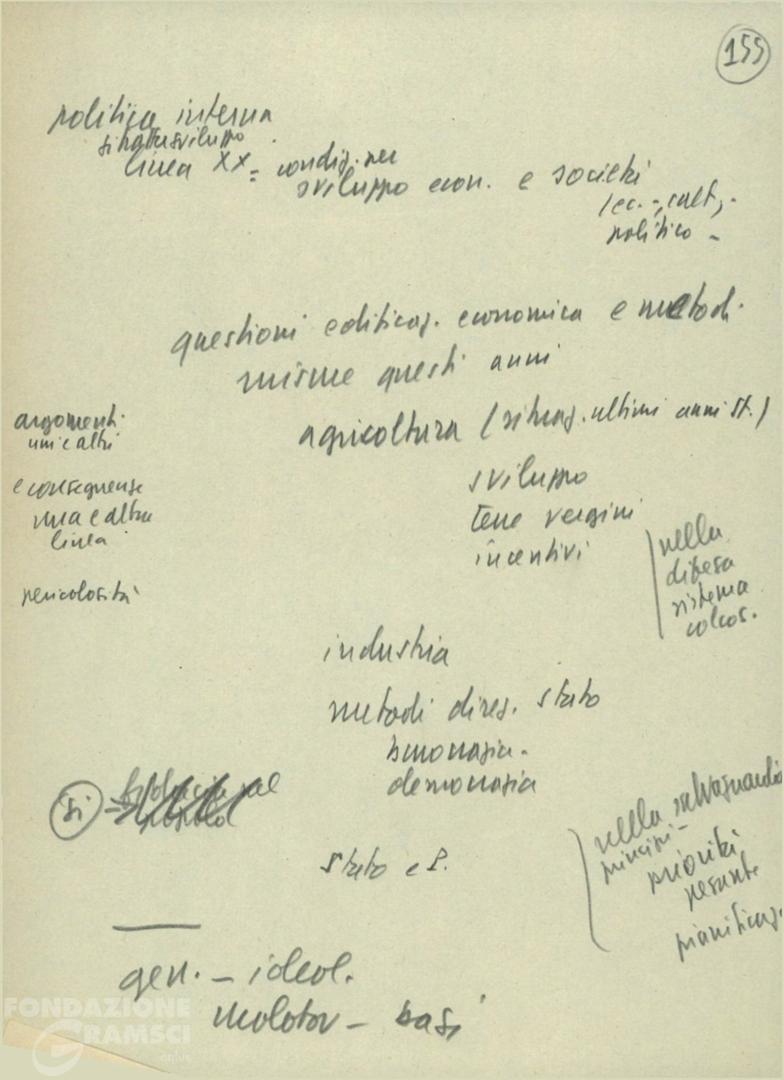 155
politica interna
si tratta sviluppo
linea XX = condiz. per
sviluppo econ. e società
(ec. -, cult, -
politico -
questioni edificaz. economica e metodi.
misure questi anni
agricoltura (situaz. ultimi anni St.)
sviluppo
terre vergini
incentivi
nella
difesa
sistema
colcos.
argomenti
uni e altri
e conseguenze
una e altra
linea
pericolosità
industria
metodi direz. stato
burocrazia -
democrazia
si =
al
stato e P.
nella salvaguardia
principi -
priorità
pesante
pianificaz.
gen. - ideol.
molotov - basi
FONDAZIONE
GRAMSCI
onlus